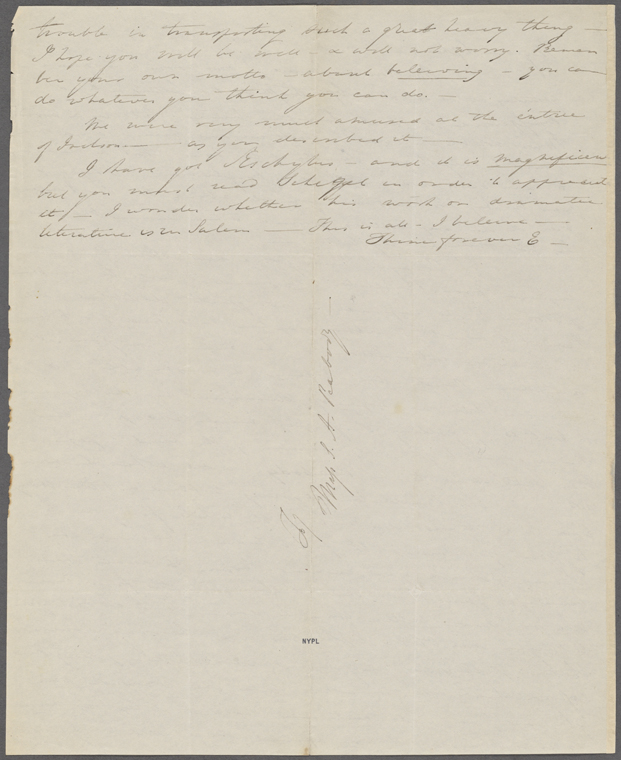 trouble in transporting such a great heavy thing —
I hope you will be well & will not worry. Remem
ber your own motto – about believing – you can
do whatever you think you can do. —
We were very much amused at the entree
of Jackson — as you described it —
I have got Æschylus – and it is magnificent
but you must read Schlegel in order to appreciate
it — I wonder whether his work on dramatic
literature is in Salem — This is all – I believe —
Thine forever E —
To
Miss S. A. Peabody —
NYPL